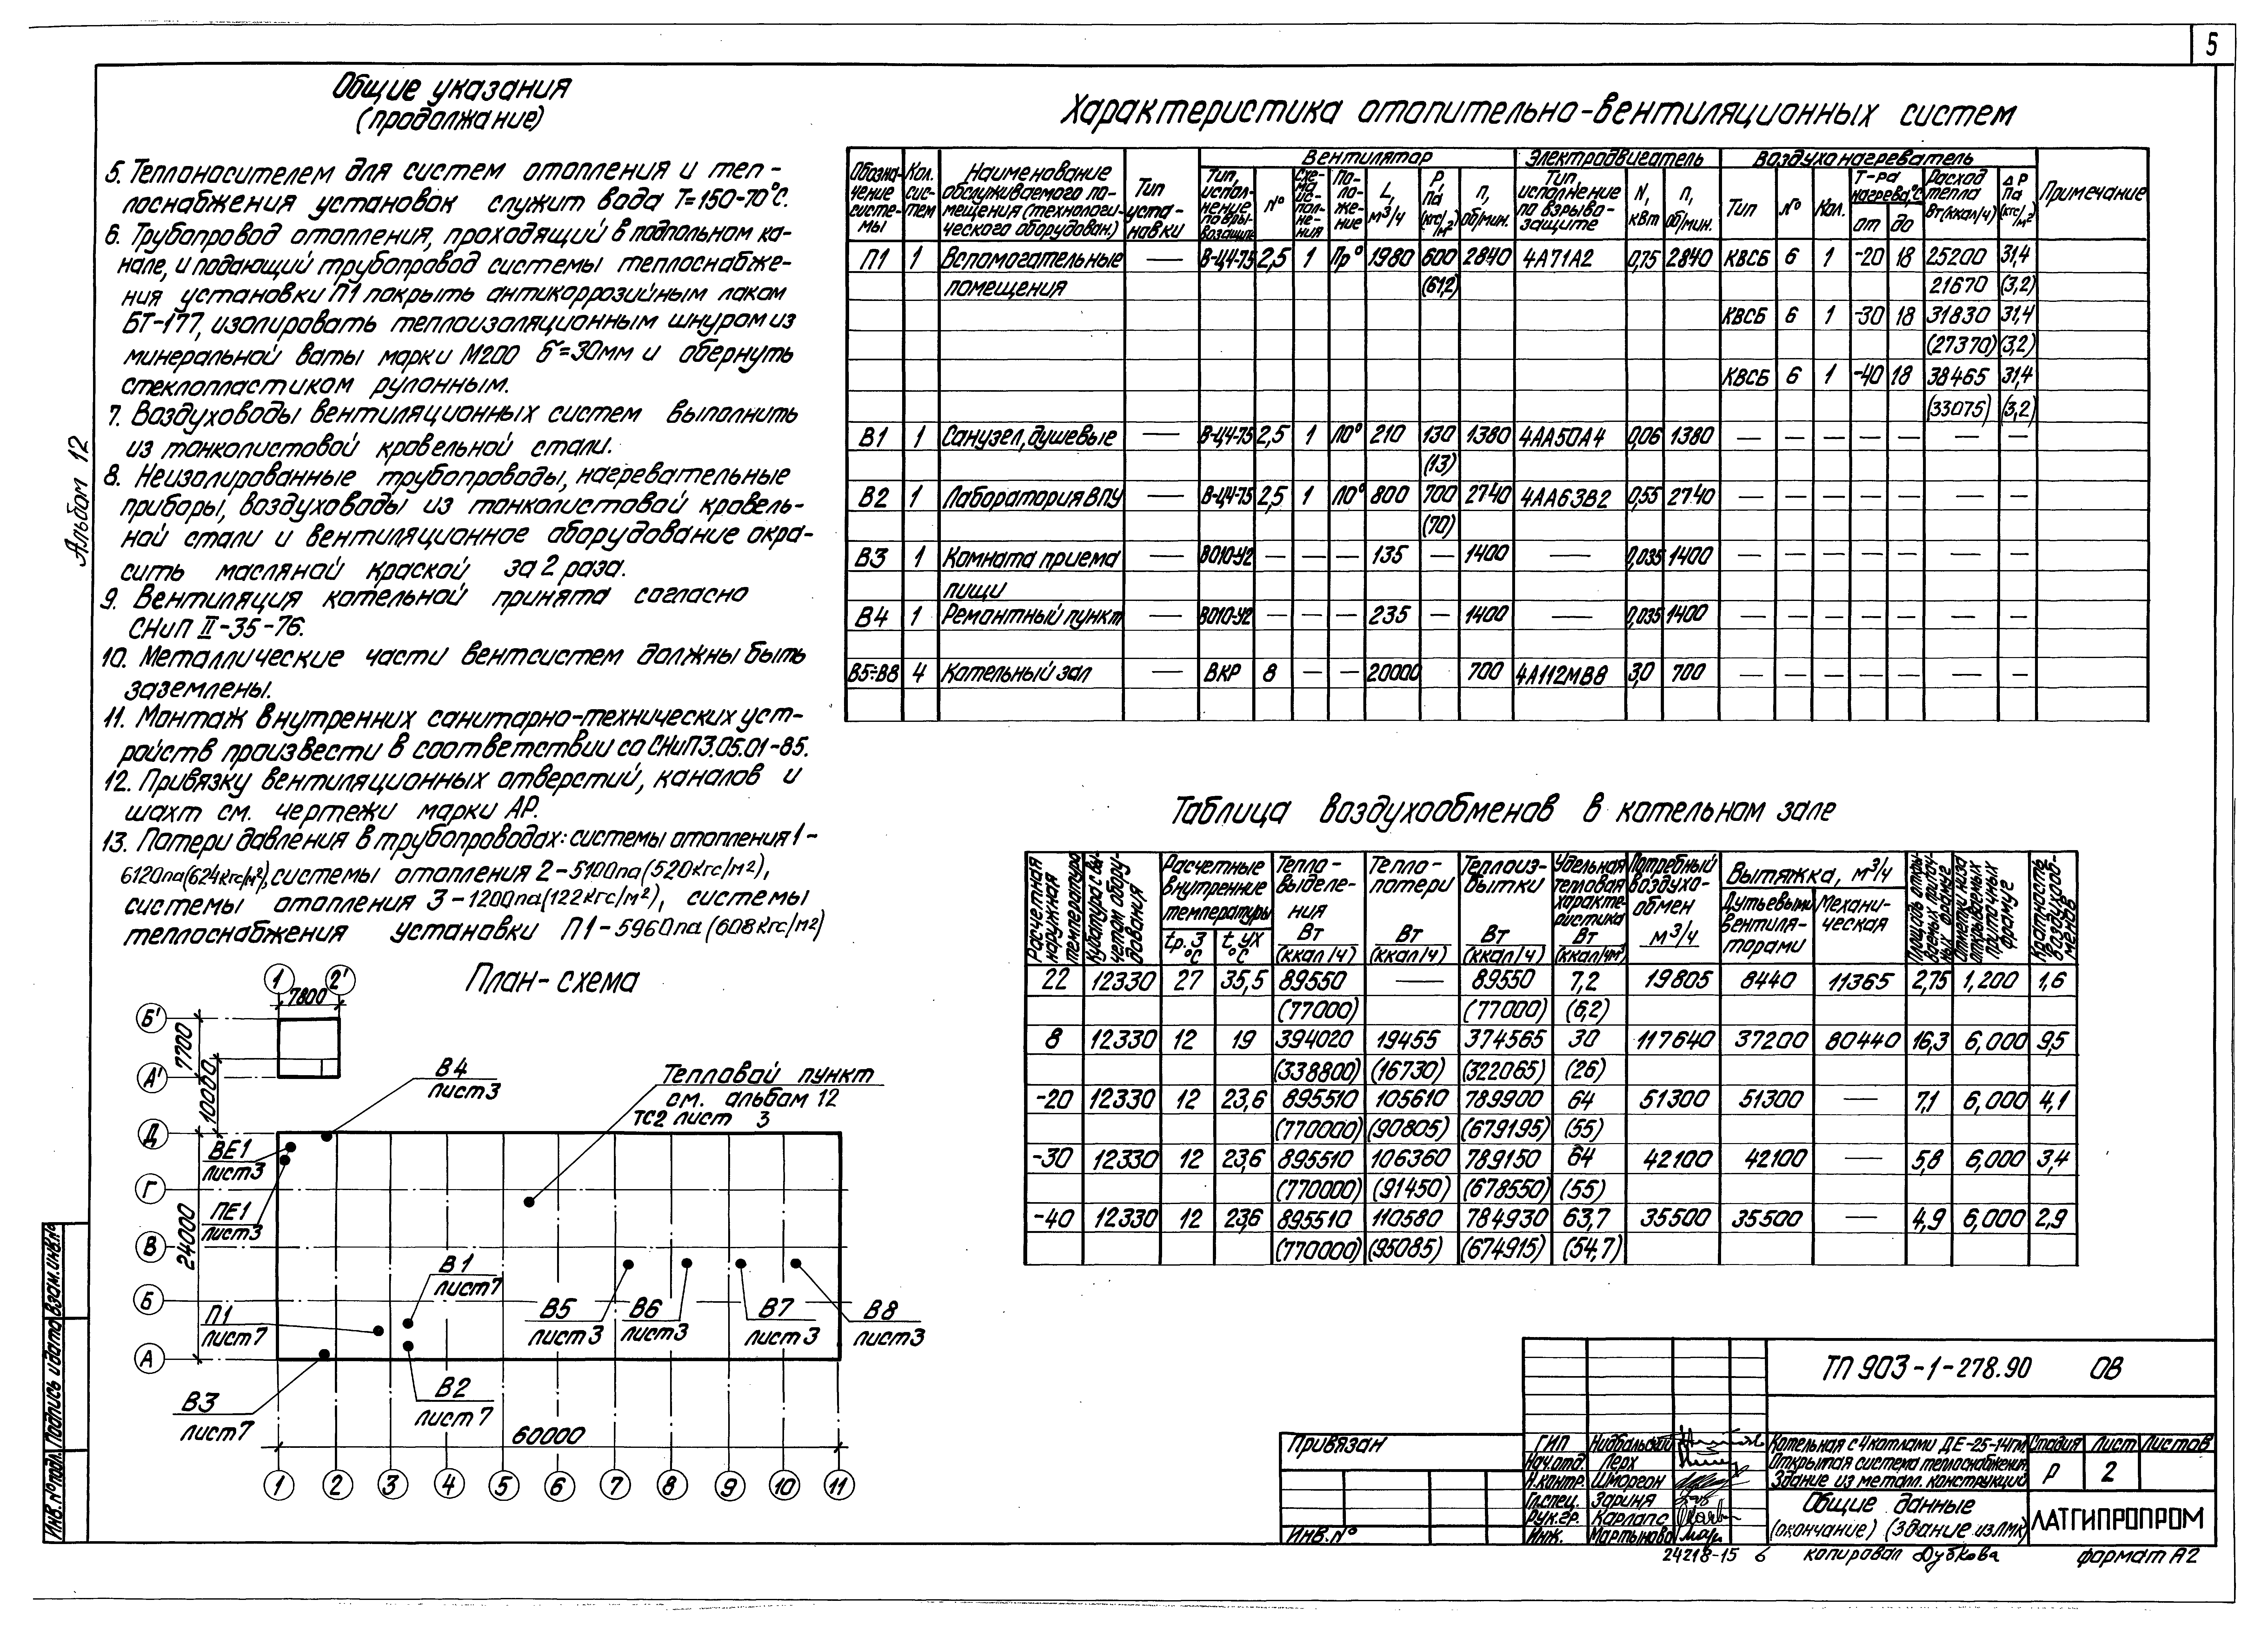 5
Общие указания
(продолжание)
5. Теплоносителем для систем отопления и теп-
лоснабжения установок служит вода Т=150-70°С.
6. Трубопровод отопления, проходящий в подпольном ка-
нале, и подающий трубопровод системы теплоснабже-
ния установки П1 покрыть антикоррозийным лаком
БТ-177, изолировать теплоизоляционным шнуром из
минеральной ваты марки М200 б=30мм и обернуть
стеклопластиком рулонным.
7. Воздуховоды вентиляционных систем выполнить
из тонколистовой кровельной стали.
8. Неизолированные трубопроводы, нагревательные
приборы, воздуховоды из тонколистовой кровель-
ной стали и вентиляционное оборудование окра-
сить масляной краской за 2 раза.
9. Вентиляция котельной принята согласно
СНиП II-35-76.
10. Металлические части вентсистем должны быть
заземлены.
11. Монтаж внутренних санитарно-технических уст-
ройств произвести в соответствии со СНиП 3.05.01-85.
12. Привязку вентиляционных отверстий, каналов и
шахт см. чертежи марки АР.
13. Потери давления в трубопроводах: системы отопления 1-
6120па(624кгс/м²), системы отопления 2-5100па(520кгс/м²),
системы отопления 3-1200па(122кгс/м²), системы
теплоснабжения установки П1-5960па(608кгс/м²)
Альбом 12
Характеристика отопительно-вентиляционных систем
Обозна-чение систе-мы | Кол. сис-тем | Наименование обслуживаемого по-мещения (технологи-ческого оборудован.) | Тип уста-новки | Вентилятор | Электродвигатель | Воздухонагреватель | Примечание
Тип, испол-нение по взры-возащите | № | Схе-ма ис-пол-не-ния | По-ло-же-ние | L, м³/ч | Р, Па (кгс/м²) | n, об/мин. | Тип, исполнение по взрыво-защите | N, кВт | n, об/мин. | Тип | № | Кол. | Т-ра нагрева, °С от до | Расход тепла Вт(ккал/ч) | ΔР Па (кгс/м²)
П1 1 Вспомогательные — В-Ц4-75 2,5 1 Пр° 1980 600 2840 4А71А2 0,75 2840 КВСБ 6 1 -20 18 25200 31,4
помещения (61,2) 21670 (3,2)
КВСБ 6 1 -30 18 31830 31,4
(27370) (3,2)
КВСБ 6 1 -40 18 38465 31,4
(33075) (3,2)
В1 1 Санузел, душевые — В-Ц4-75 2,5 1 Л0° 210 130 1380 4АА50А4 0,06 1380 — — — — — — —
(13)
В2 1 Лаборатория ВПУ — В-Ц4-75 2,5 1 Л0° 800 700 2740 4АА63В2 0,55 2740 — — — — — — —
(70)
В3 1 Комната приема — ВО10-У2 — — — 135 — 1400 — 0,035 1400 — — — — — — —
пищи
В4 1 Ремонтный пункт — ВО10-У2 — — — 235 — 1400 — 0,035 1400 — — — — — — —
В5÷В8 4 Котельный зал — ВКР 8 — — 20000 700 4А112МВ8 3,0 700 — — — — — — —
Таблица воздухообменов в котельном зале
Расчетная наружная температура | Кубатура с вы-четом обору-дования | Расчетные внутренние температуры tр.з °С t ух °С | Тепло-выделе-ния Вт (ккал/ч) | Тепло-потери Вт (ккал/ч) | Теплоиз-бытки Вт (ккал/ч) | Удельная тепловая характе-ристика Вт (ккал/чм³) | Потребный воздухо-обмен м³/ч | Вытяжка, м³/ч Дутьевыми вентиля-торами Механи-ческая | Площадь откры-ваемых приточ-ных фрамуг | Отметка низа открываемых приточных фрамуг | Кратность воздухооб-менов
22 12330 27 35,5 89550 — 89550 7,2 19805 8440 11365 2,75 1,200 1,6
(77000) (77000) (6,2)
8 12330 12 19 394020 19455 374565 30 117640 37200 80440 16,3 6,000 9,5
(338800) (16730) (322065) (26)
-20 12330 12 23,6 895510 105610 789900 64 51300 51300 — 7,1 6,000 4,1
(770000) (90805) (679195) (55)
-30 12330 12 23,6 895510 106360 789150 64 42100 42100 — 5,8 6,000 3,4
(770000) (91450) (678550) (55)
-40 12330 12 23,6 895510 110580 784930 63,7 35500 35500 — 4,9 6,000 2,9
(770000) (95085) (674915) (54,7)
План-схема
1 2'
7800
Б'
7700
А'
10000
В4
лист3
Тепловой пункт
см. альбом 12
ТС2 лист 3
Д
ВЕ1
лист3
Г
ПЕ1
лист3
24000
В
В1
лист7
Б
В5
лист3
В6
лист3
В7
лист3
В8
лист3
П1
лист7
А
В3
лист7
В2
лист7
60000
1 2 3 4 5 6 7 8 9 10 11
Инв.№подл. Подпись и дата Взам.инв.№
Привязан
Инв.№
ТП 903-1-278.90 ОВ
ГИП Нидбальский
Нач.отд. Лерх
Н.контр. Шморгон
Гл.спец. Зариня
Рук.гр. Карлапс
Инж. Мартынова
Котельная с 4 котлами ДЕ-25-14гм.
Открытая система теплоснабжения.
Здание из металл. конструкций
Стадия Лист Листов
Р 2
Общие данные
(окончание) (Здание из ЛМК)
ЛАТГИПРОПРОМ
24218-15 6 копировал Дубкова формат А2